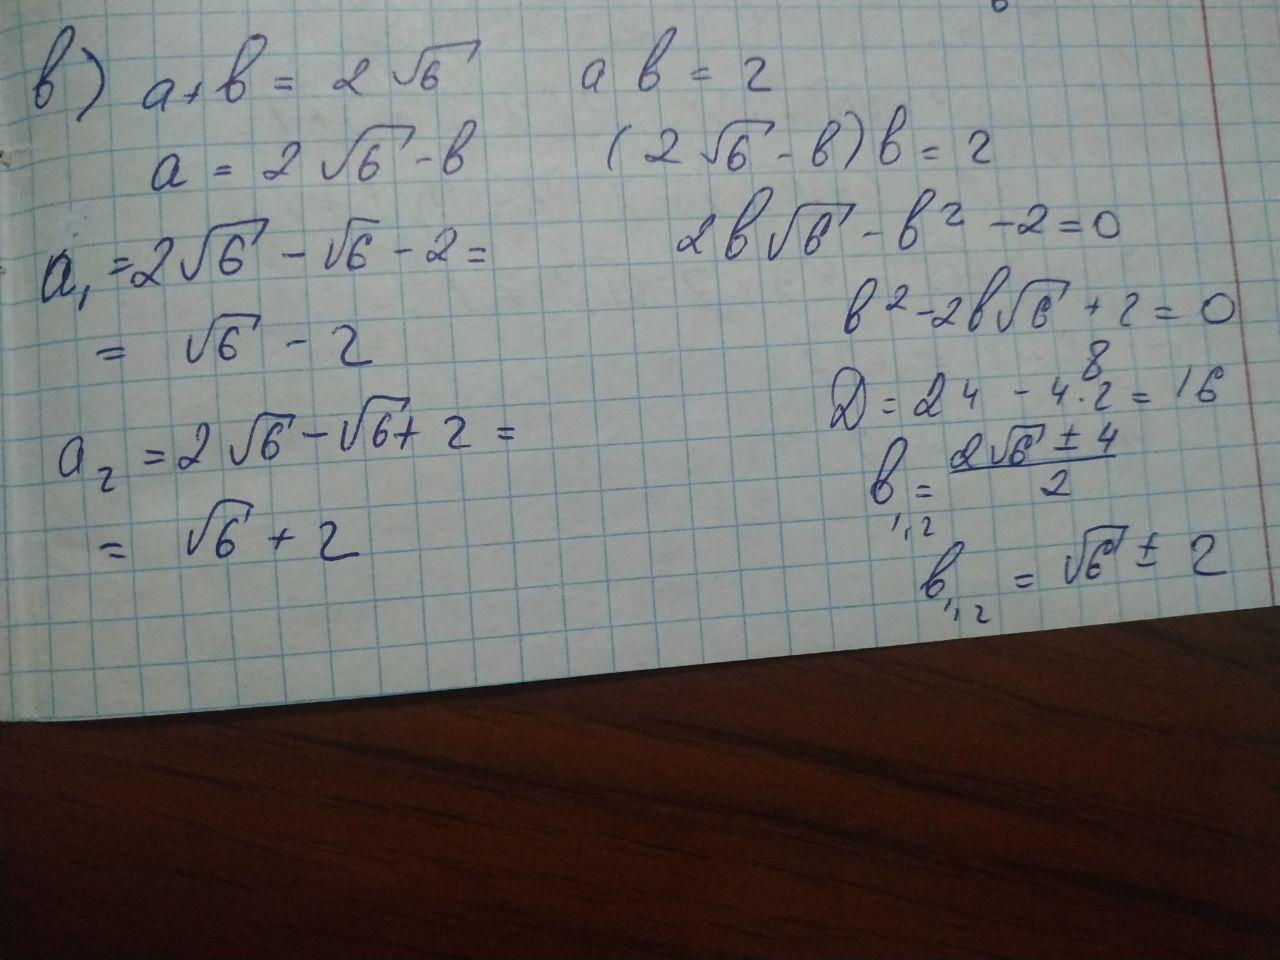 в) a+b = 2√6 ab = 2
a = 2√6 - b (2√6 - b)b = 2
a₁ = 2√6 - √6 - 2 = 2b√6 - b² - 2 = 0
= √6 - 2 b² - 2b√6 + 2 = 0
8
D = 24 - 4·2 = 16
a₂ = 2√6 - √6 + 2 = b₁,₂ = (2√6 ± 4)/2
= √6 + 2 b₁,₂ = √6 ± 2